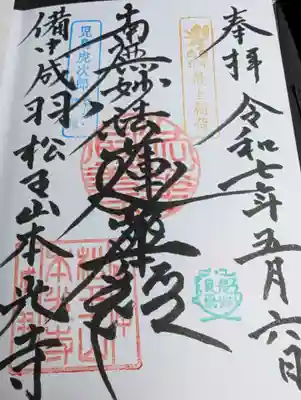 奉拝 令和七年五月六日
最上稲荷
南無妙法蓮華経
児島虎次郎
備中成羽 松玉山本光寺